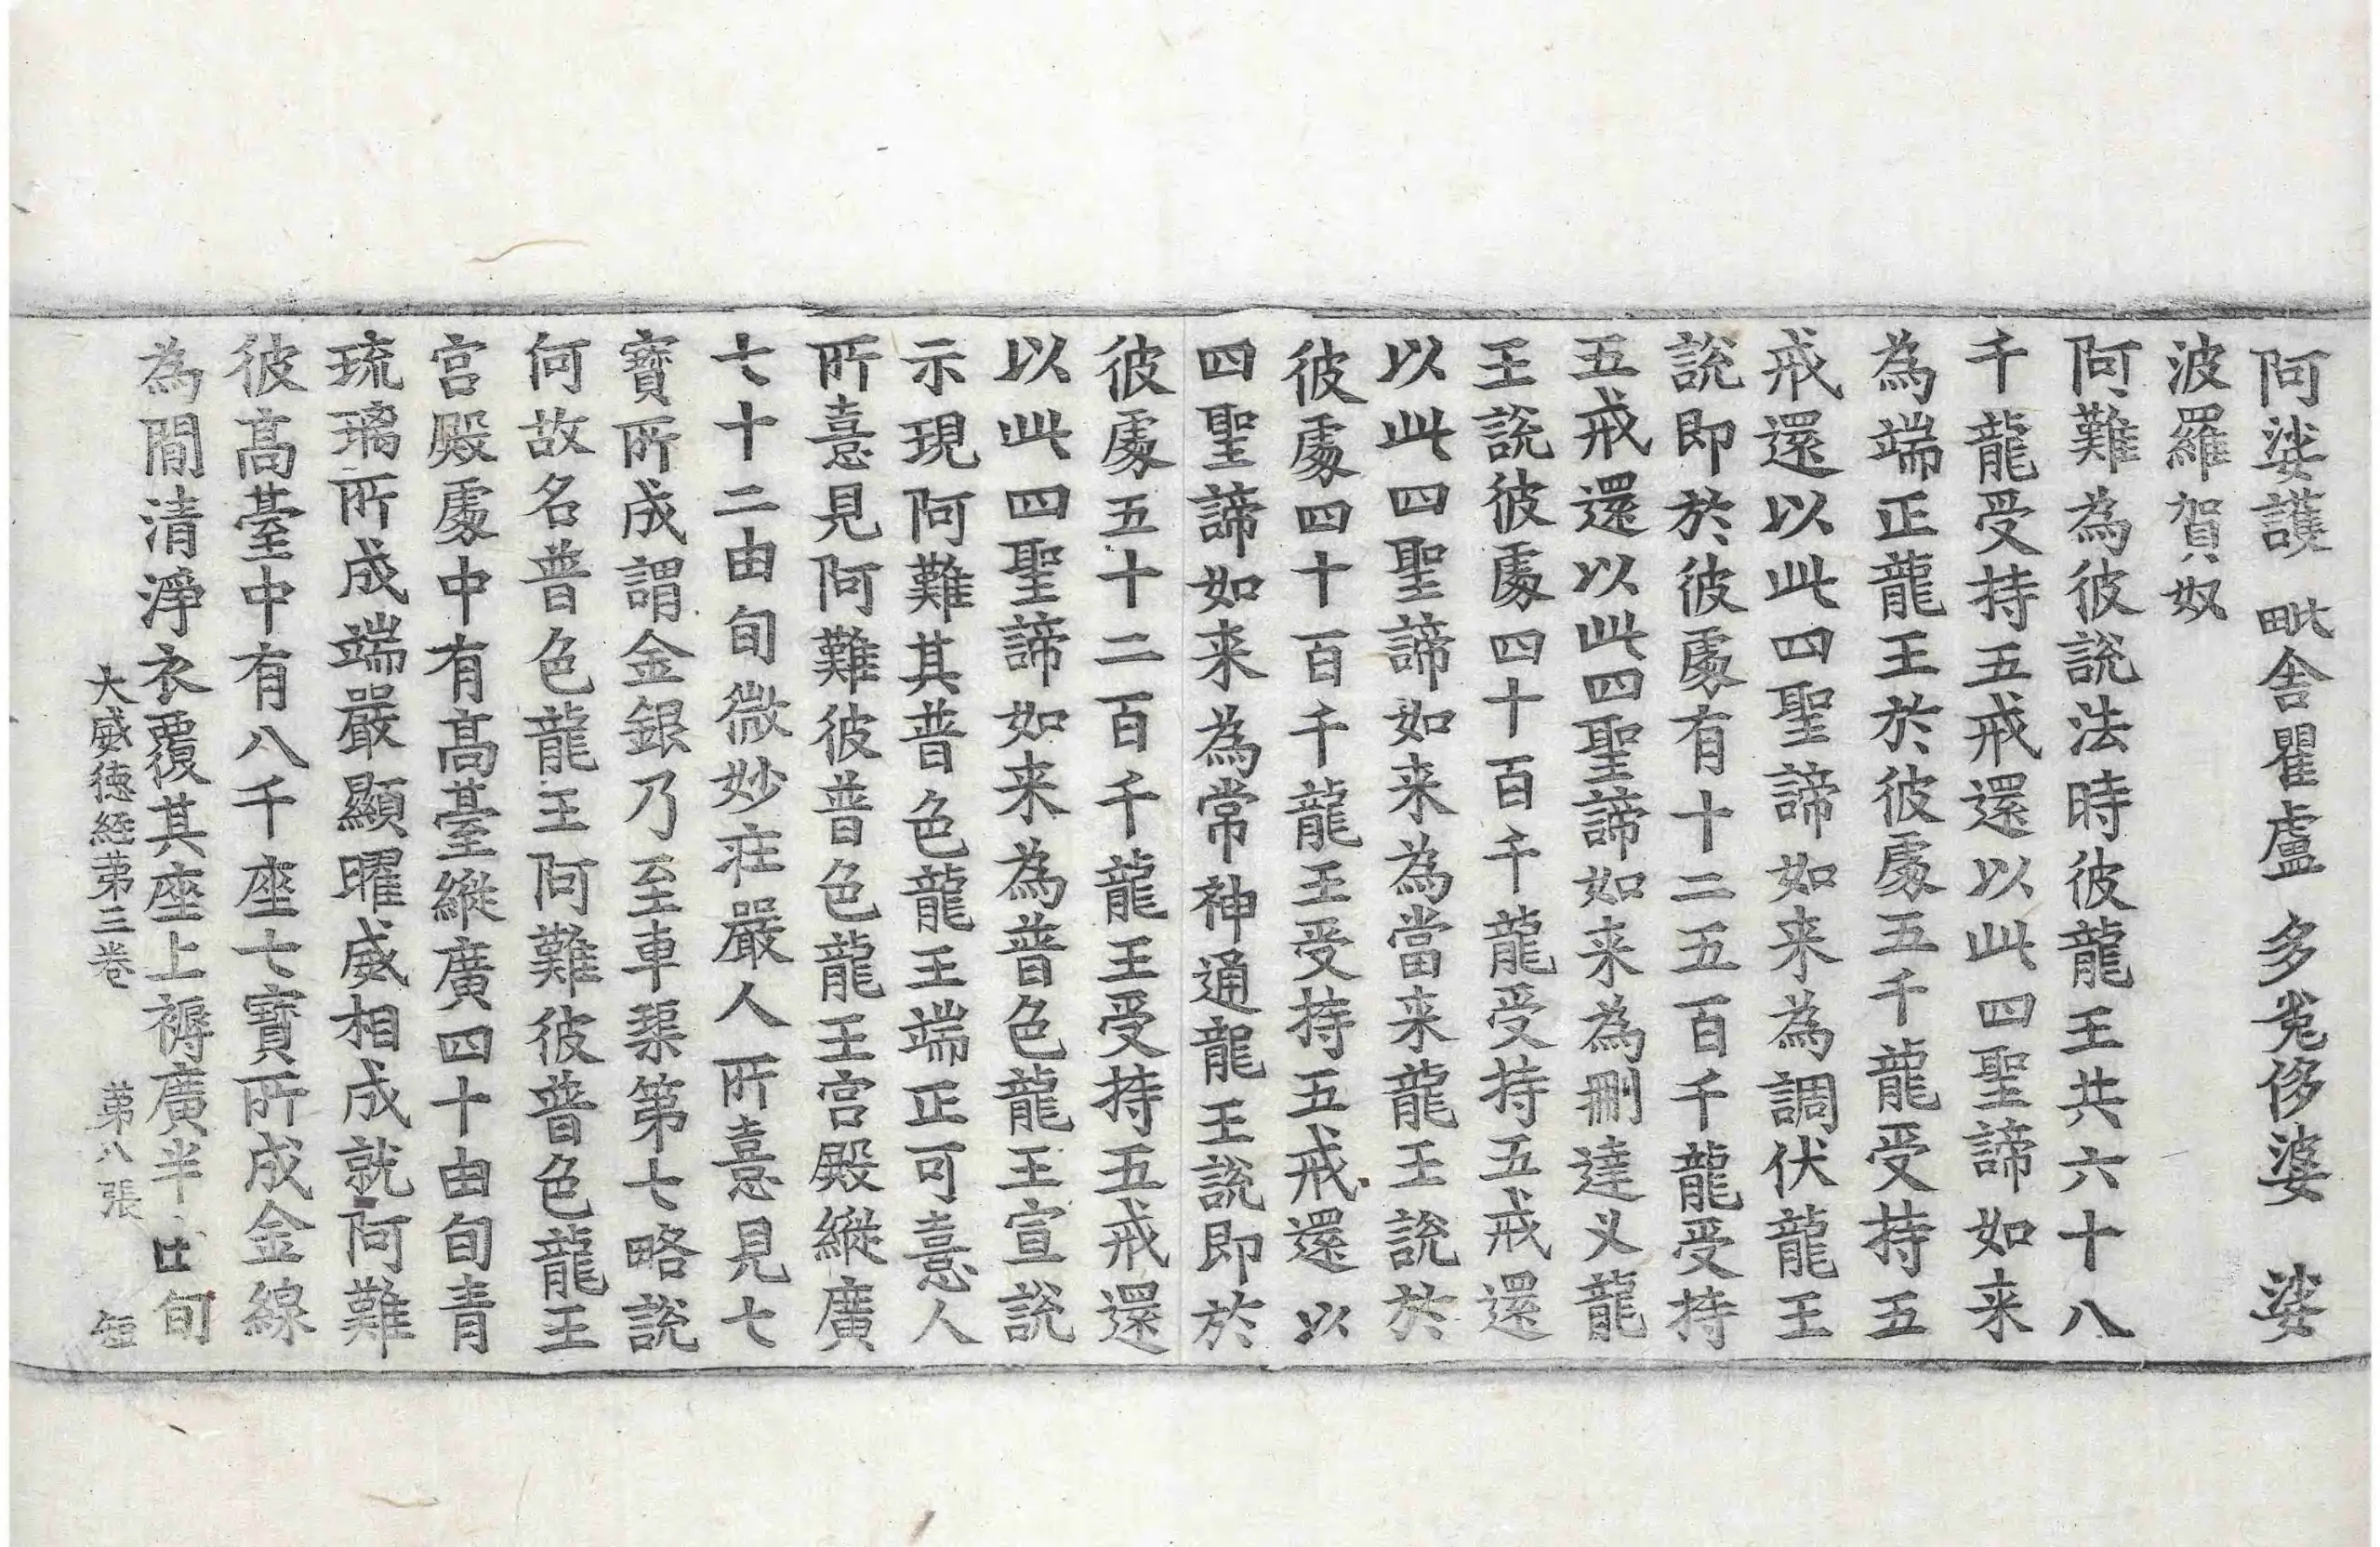 阿娑護 毗舍瞿盧 多菟侈婆 娑
波羅賀奴
阿難為彼說法時彼龍王共六十八
千龍受持五戒還以此四聖諦如来
為端正龍王於彼處五千龍受持五
戒還以此四聖諦如来為調伏龍王
說即於彼處有十二五百千龍受持
五戒還以此四聖諦如来為刪達义龍
王說彼處四十百千龍受持五戒還
以此四聖諦如来為當来龍王說於
彼處四十百千龍王受持五戒還以
四聖諦如来為常神通龍王說即於
彼處五十二百千龍王受持五戒還
以此四聖諦如来為普色龍王宣說
示現阿難其普色龍王端正可憙人
所憙見阿難彼普色龍王宮殿縱廣
七十二由旬微妙莊嚴人所憙見七
寶所成謂金銀乃至車渠第七略說
何故名普色龍王阿難彼普色龍王
宮殿處中有高臺縱廣四十由旬青
琉璃所成端嚴顯曜威相成就阿難
彼高臺中有八千座七寶所成金線
為間清淨衣覆其座上褥廣半由旬
大威德經第三卷 第八張